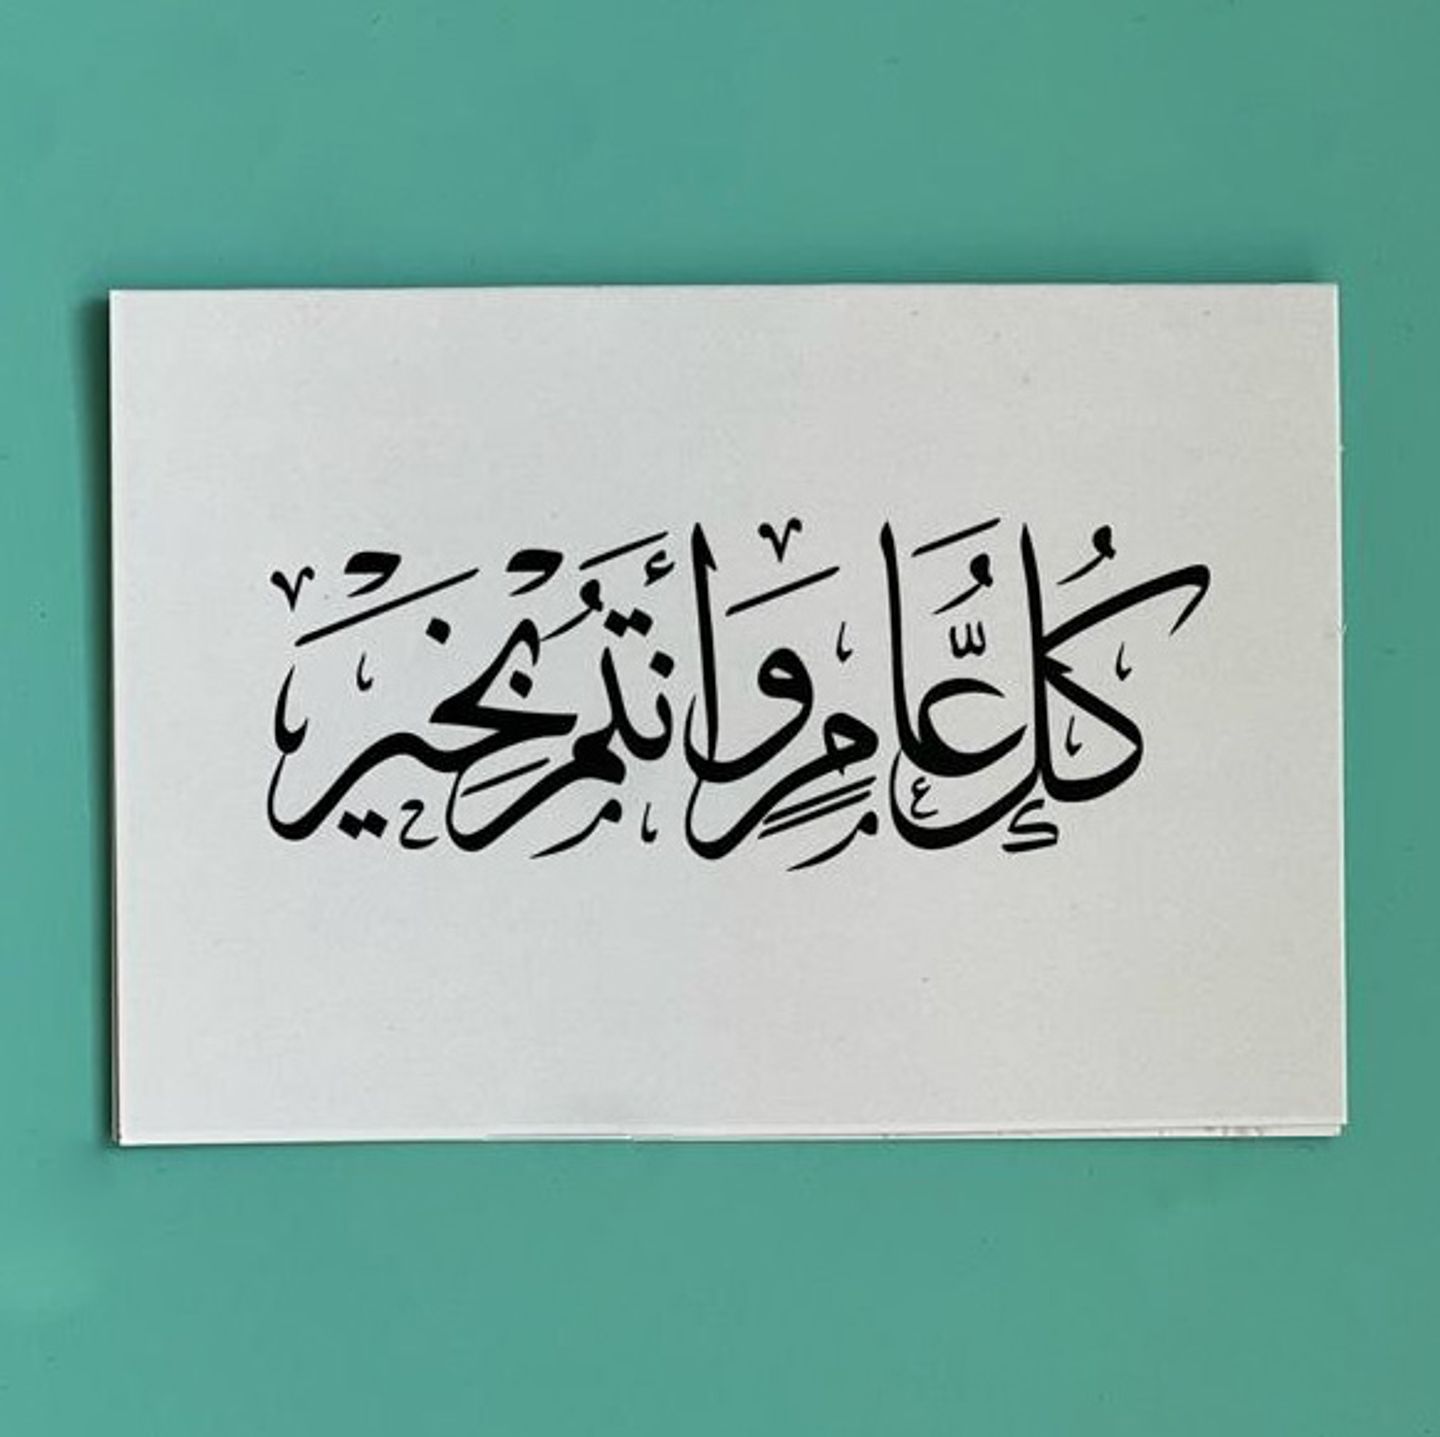 كُلُّ عَامٍ وَأَنْتُمْ بِخَيْر